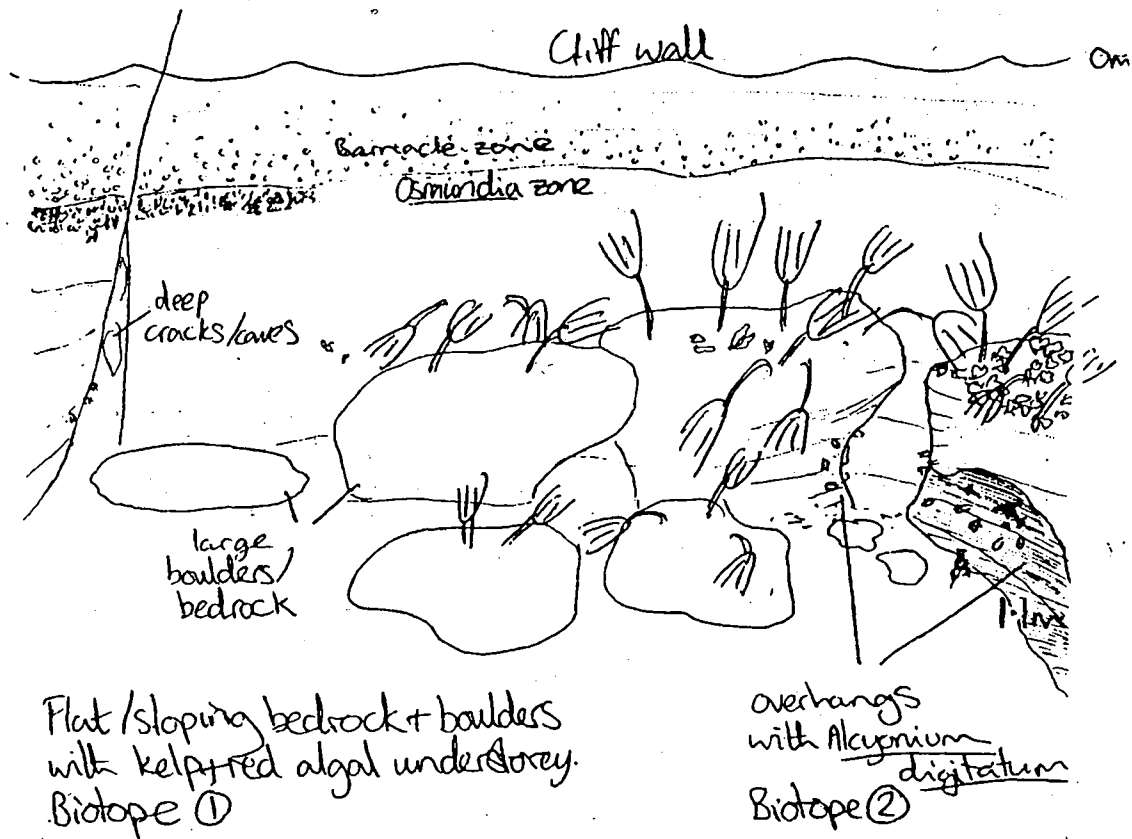 Cliff wall
0m
Barnacle zone
Osmundia zone
deep
cracks/caves
large
boulders/
bedrock
Flat/sloping bedrock + boulders
with kelp + red algal understorey.
Biotope ①
overhangs
with Alcyonium
digitatum
Biotope ②